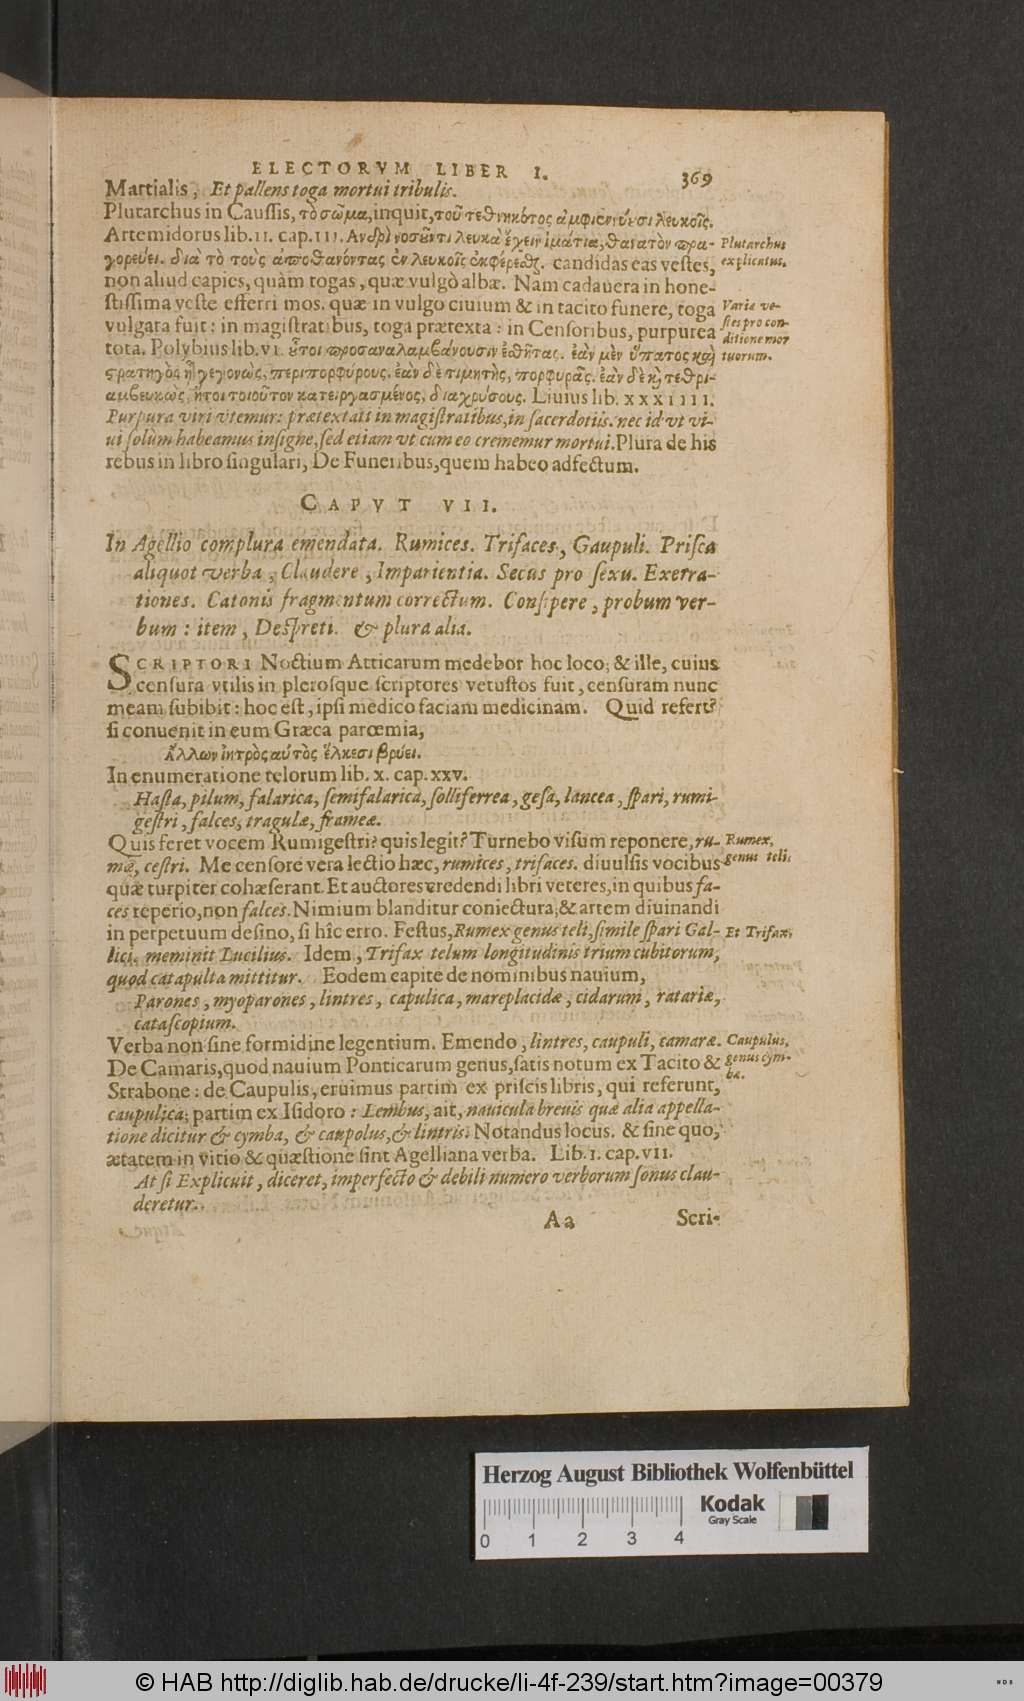 ELECTORVM LIBER I. 369
Martialis, Et pallens toga mortui tribulis.
Plutarchus in Caussis, τὸ σῶμα, inquit, τοῦ τεθνηκότος ἀμφιεννύυσι λευκοῖς.
Artemidorus lib. II. cap. III. Ἀνδρὶ νοσοῦντι λευκὰ ἔχειν ἱμάτια, θάνατον προα-
Plutarchus
γορεύει. διὰ τὸ τοὺς ἀποθανόντας ἐν λευκοῖς ἐκφέρεσθαι. candidas eas vestes,
explicatus.
non aliud capies, quàm togas, quæ vulgò albæ. Nam cadauera in hone-
stissima veste efferri mos. quæ in vulgo ciuium & in tacito funere, toga
Variæ ve-
vulgata fuit: in magistratibus, toga prætexta: in Censoribus, purpurea
stes pro con-
ditione mor
tota. Polybius lib. VI. οὗτοι προσαναλαμβάνουσιν ἐσθῆτας. ἐὰν μὲν ὕπατος καὶ
tuorum.
στρατηγὸς ᾖ γεγονὼς, περιπορφύρους. ἐὰν δὲ τιμητὴς, πορφυρᾶς. ἐὰν δὲ καὶ τεθρι-
αμβευκὼς, ἤτοι τοιοῦτον κατειργασμένος, διαχρύσους. Liuius lib. XXXIIII.
Purpura viri vtemur: prætextati in magistratibus, in sacerdotiis. nec id vt vi-
ui solum habeamus insigne, sed etiam vt cum eo crememur mortui. Plura de his
rebus in libro singulari, De Funeribus, quem habeo adfectum.
CAPVT VII.
In Agellio complura emendata. Rumices. Trifaces, Gaupuli. Prisca
aliquot verba, Claudere, Imparientia. Secus pro sexu. Exerra-
tiones. Catonis fragmentum correctum. Consipere, probum ver-
bum: item, Despreti. & plura alia.
SCRIPTORI Noctium Atticarum medebor hoc loco; & ille, cuius
censura vtilis in plerosque scriptores vetustos fuit, censuram nunc
meam subibit: hoc est, ipsi medico faciam medicinam. Quid refert?
si conuenit in eum Græca parœmia,
Ἄλλων ἰητρὸς αὐτὸς ἕλκεσι βρύει.
In enumeratione telorum lib. X. cap. XXV.
Hasta, pilum, falarica, semifalarica, solliferrea, gesa, lancea, spari, rumi-
gestri, falces, tragulæ, frameæ.
Quis feret vocem Rumigestri? quis legit? Turnebo visum reponere, ru-
Rumex,
mæ, cestri. Me censore vera lectio hæc, rumices, trifaces. diuulsis vocibus
genus teli.
quæ turpiter cohæserant. Et auctores credendi libri veteres, in quibus fa-
ces reperio, non falces. Nimium blanditur coniectura; & artem diuinandi
in perpetuum desino, si hîc erro. Festus, Rumex genus teli, simile spari Gal-
Et Trifax.
lici. meminit Lucilius. Idem, Trifax telum longitudinis trium cubitorum,
quod catapulta mittitur. Eodem capite de nominibus nauium,
Parones, myoparones, lintres, capulica, mareplacidæ, cidarum, ratariæ,
catascopium.
Verba non sine formidine legentium. Emendo, lintres, caupuli, camaræ.
Caupulus,
De Camaris, quod nauium Ponticarum genus, satis notum ex Tacito &
genus cym-
bæ.
Strabone: de Caupulis, eruimus partim ex priscis libris, qui referunt,
caupulica; partim ex Isidoro: Lembus, ait, nauicula breuis quæ alia appella-
tione dicitur & cymba, & caupolus, & lintris. Notandus locus. & sine quo,
ætatem in vitio & quæstione sint Agelliana verba. Lib. I. cap. VII.
At si Explicuit, diceret, imperfecto & debili numero verborum sonus clau-
deretur.
Aa Scri-
Herzog August Bibliothek Wolfenbüttel
Kodak
Gray Scale
0 1 2 3 4
© HAB http://diglib.hab.de/drucke/li-4f-239/start.htm?image=00379